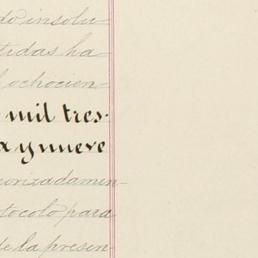 do insolu-
tidas ha
ochocien-
mil tres-
a y nueve
orizadamen-
tocolo para
de la presen-